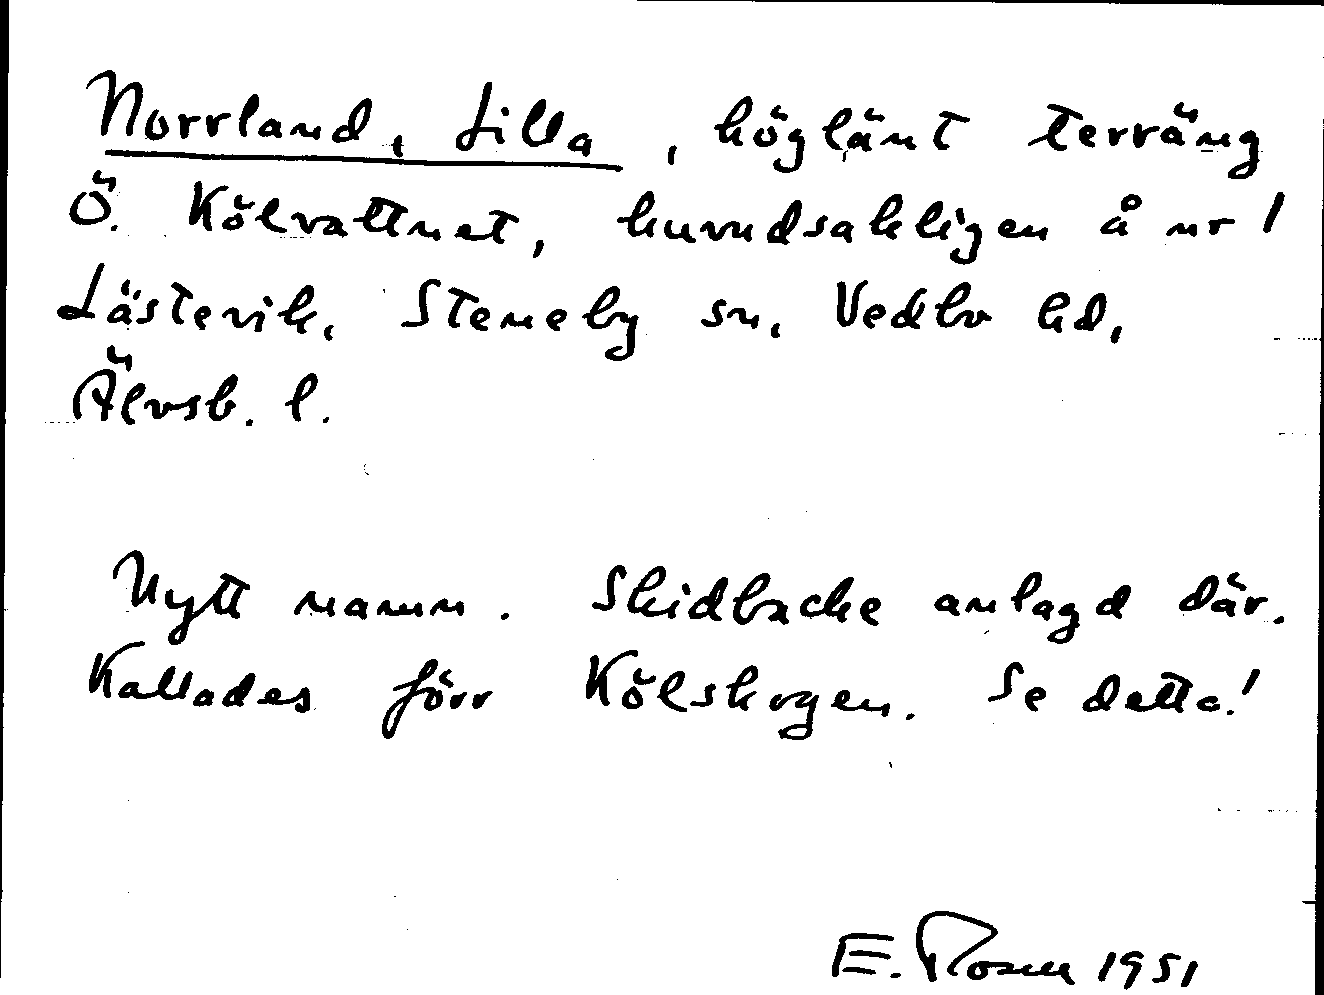 Norrland, Lilla, höglänt terräng
Ö. Kölvattnet, huvudsakligen å nr 1
Lästevik, Steneby sn, Vedbo hd,
Älvsb. l.
Nytt namn. Skidbacke anlagd där.
Kallades förr Kölskogen. Se detta!
E. Rosell 1951